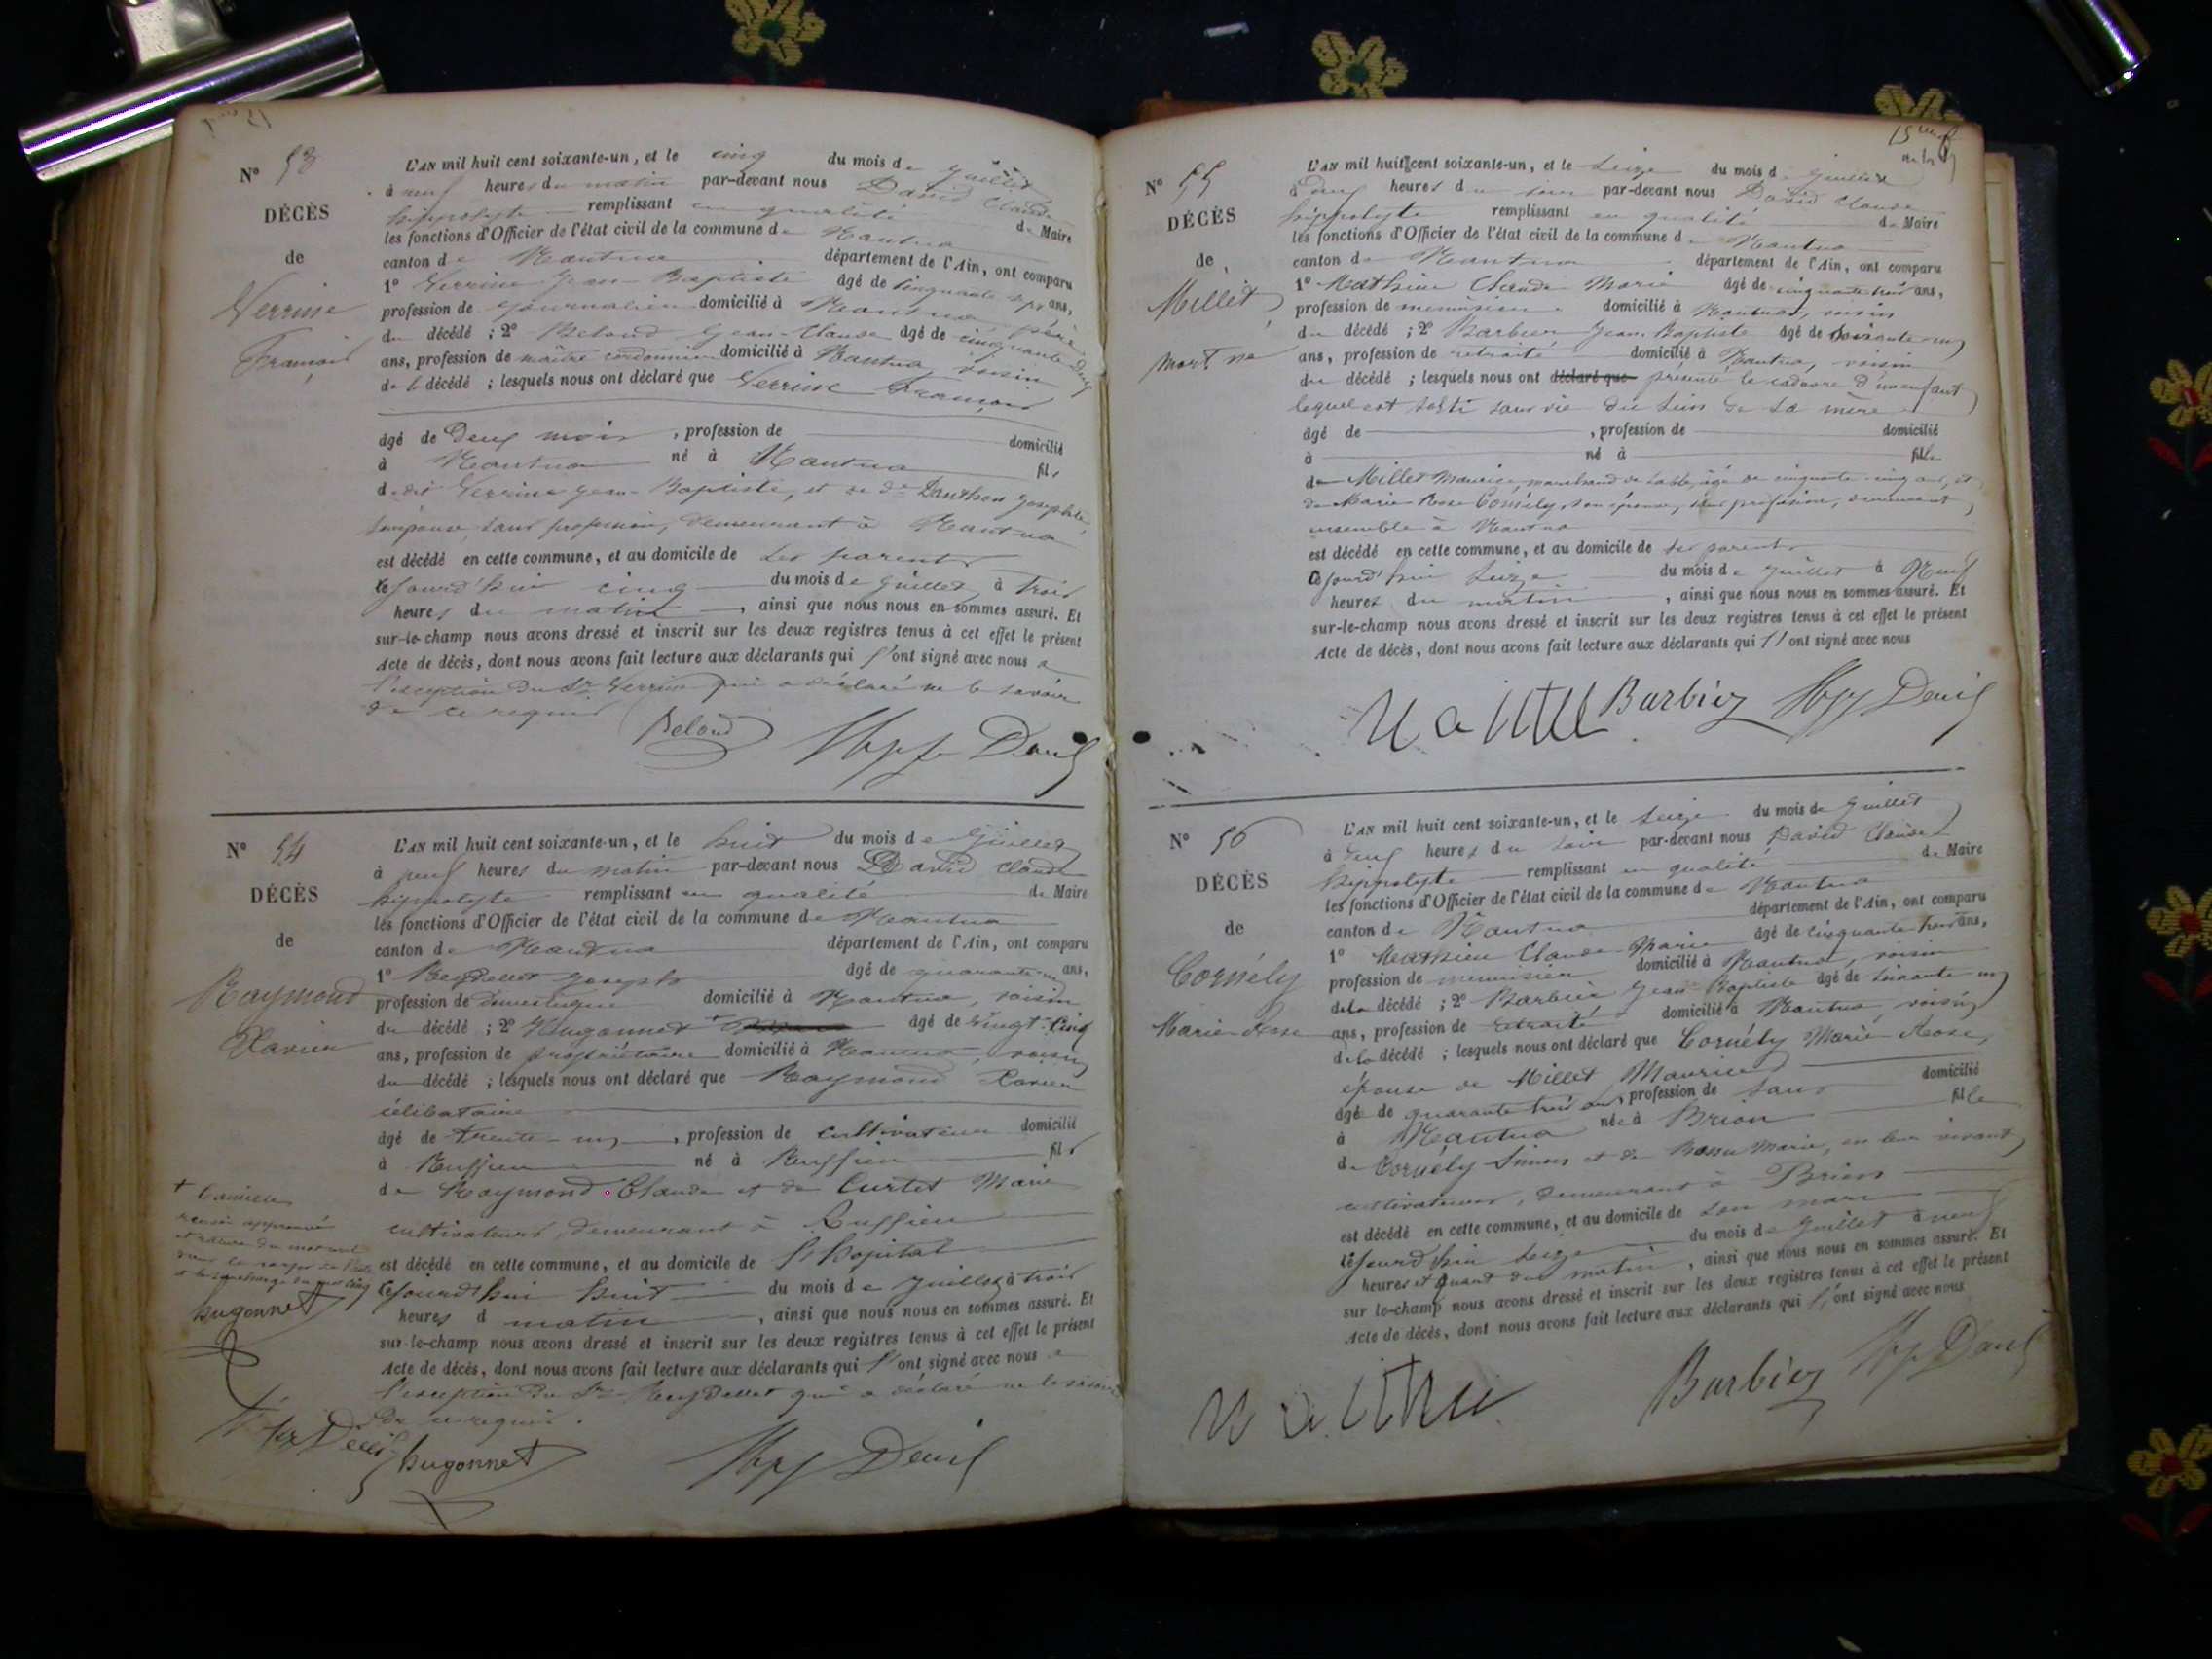 N° 53
DÉCÈS
de
Verrine
François
L'AN mil huit cent soixante-un, et le cinq du mois de Juillet
à neuf heures du matin par-devant nous David Claude
hippolyte remplissant en qualité de Maire
les fonctions d'Officier de l'état civil de la commune de Nantua
canton de Nantua département de l'Ain, ont comparu
1° Verrine Jean-Baptiste âgé de cinquante sept ans,
profession de journalier domicilié à Nantua père
du décédé ; 2° Belond Jean-Claude âgé de cinquante deux
ans, profession de maître cordonnier domicilié à Nantua, voisin
de le décédé ; lesquels nous ont déclaré que Verrine François
âgé de deux mois , profession de domicilié
à Nantua né à Nantua fils
de dit Verrine Jean-Baptiste, et de de Danthon Josephte
son épouse, sans profession, demeurant à Nantua
est décédé en cette commune, et au domicile de ses parents
cejourd'hui cinq du mois de Juillet à trois
heures du matin , ainsi que nous nous en sommes assuré. Et
sur-le-champ nous avons dressé et inscrit sur les deux registres tenus à cet effet le présent
Acte de décès, dont nous avons fait lecture aux déclarants qui l'ont signé avec nous à
l'exception du Sr Verrine qui a déclaré ne le savoir
de ce requis
Belond
N° 54
DÉCÈS
de
Raymond
Xavier
L'AN mil huit cent soixante-un, et le huit du mois de Juillet
à neuf heures du matin par-devant nous David Claude
hippolyte remplissant en qualité de Maire
les fonctions d'Officier de l'état civil de la commune de Nantua
canton de Nantua département de l'Ain, ont comparu
1° Reydellet Joseph âgé de quarante un ans,
profession de domestique domicilié à Nantua, voisin
du décédé ; 2° hugonnet + âgé de vingt-cinq
ans, profession de propriétaire domicilié à Nantua, voisin
du décédé ; lesquels nous ont déclaré que Raymond Xavier
célibataire
âgé de trente-un , profession de cultivateur domicilié
à Ruffieu né à Ruffieu fils
de Raymond Claude et de Curtet Marie
cultivateurs, demeurant à Ruffieu
est décédé en cette commune, et au domicile de l'hopital
cejourd'hui huit du mois de Juillet à trois
heures d matin , ainsi que nous nous en sommes assuré. Et
sur-le-champ nous avons dressé et inscrit sur les deux registres tenus à cet effet le présent
Acte de décès, dont nous avons fait lecture aux déclarants qui l'ont signé avec nous à
l'exception du Sr Reydellet qui a déclaré ne le savoir
de ce requis.
+ Camille
renvoi approuvé
hugonnet
hugonnet
N° 55
DÉCÈS
de
Millet
mort né
L'AN mil huit cent soixante-un, et le seize du mois de Juillet
à deux heures du soir par-devant nous David Claude
hippolyte remplissant en qualité de Maire
les fonctions d'Officier de l'état civil de la commune de Nantua
canton de Nantua département de l'Ain, ont comparu
1° Mathieu Claude Marie âgé de cinquante trois ans,
profession de menuisier domicilié à Nantua, voisin
du décédé ; 2° Barbier Jean-Baptiste âgé de soixante un
ans, profession de retraité domicilié à Nantua, voisin
du décédé ; lesquels nous ont déclaré que présenté le cadavre d'un enfant
lequel est sorti sans vie du sein de sa mère
âgé de , profession de domicilié
à né à fils
de Millet Maurice, marchand de sable, âgé de cinquante cinq ans, et
de Marie Rose Cornély, son épouse, sans profession, demeurant
ensemble à Nantua
est décédé en cette commune, et au domicile de ses parents
cejourd'hui seize du mois de Juillet à neuf
heures du matin , ainsi que nous nous en sommes assuré. Et
sur-le-champ nous avons dressé et inscrit sur les deux registres tenus à cet effet le présent
Acte de décès, dont nous avons fait lecture aux déclarants qui l'ont signé avec nous
Barbier
N° 56
DÉCÈS
de
Cornély
Marie-Rose
L'AN mil huit cent soixante-un, et le seize du mois de Juillet
à deux heures du soir par-devant nous David Claude
hippolyte remplissant en qualité de Maire
les fonctions d'Officier de l'état civil de la commune de Nantua
canton de Nantua département de l'Ain, ont comparu
1° Mathieu Claude Marie âgé de cinquante trois ans,
profession de menuisier domicilié à Nantua, voisin
de la décédé ; 2° Barbier Jean-Baptiste âgé de soixante un
ans, profession de retraité domicilié à Nantua, voisin
de la décédé ; lesquels nous ont déclaré que Cornély Marie-Rose,
épouse de Millet Maurice
âgé de quarante trois ans, profession de sans domicilié
à Nantua née à Brion fille
de Cornély Simon et de Bossu Marie, en leur vivant
cultivateurs, demeurant à Brion
est décédé en cette commune, et au domicile de son mari
cejourd'hui seize du mois de Juillet à neuf
heures et quart du matin , ainsi que nous nous en sommes assuré. Et
sur-le-champ nous avons dressé et inscrit sur les deux registres tenus à cet effet le présent
Acte de décès, dont nous avons fait lecture aux déclarants qui l'ont signé avec nous
Barbier